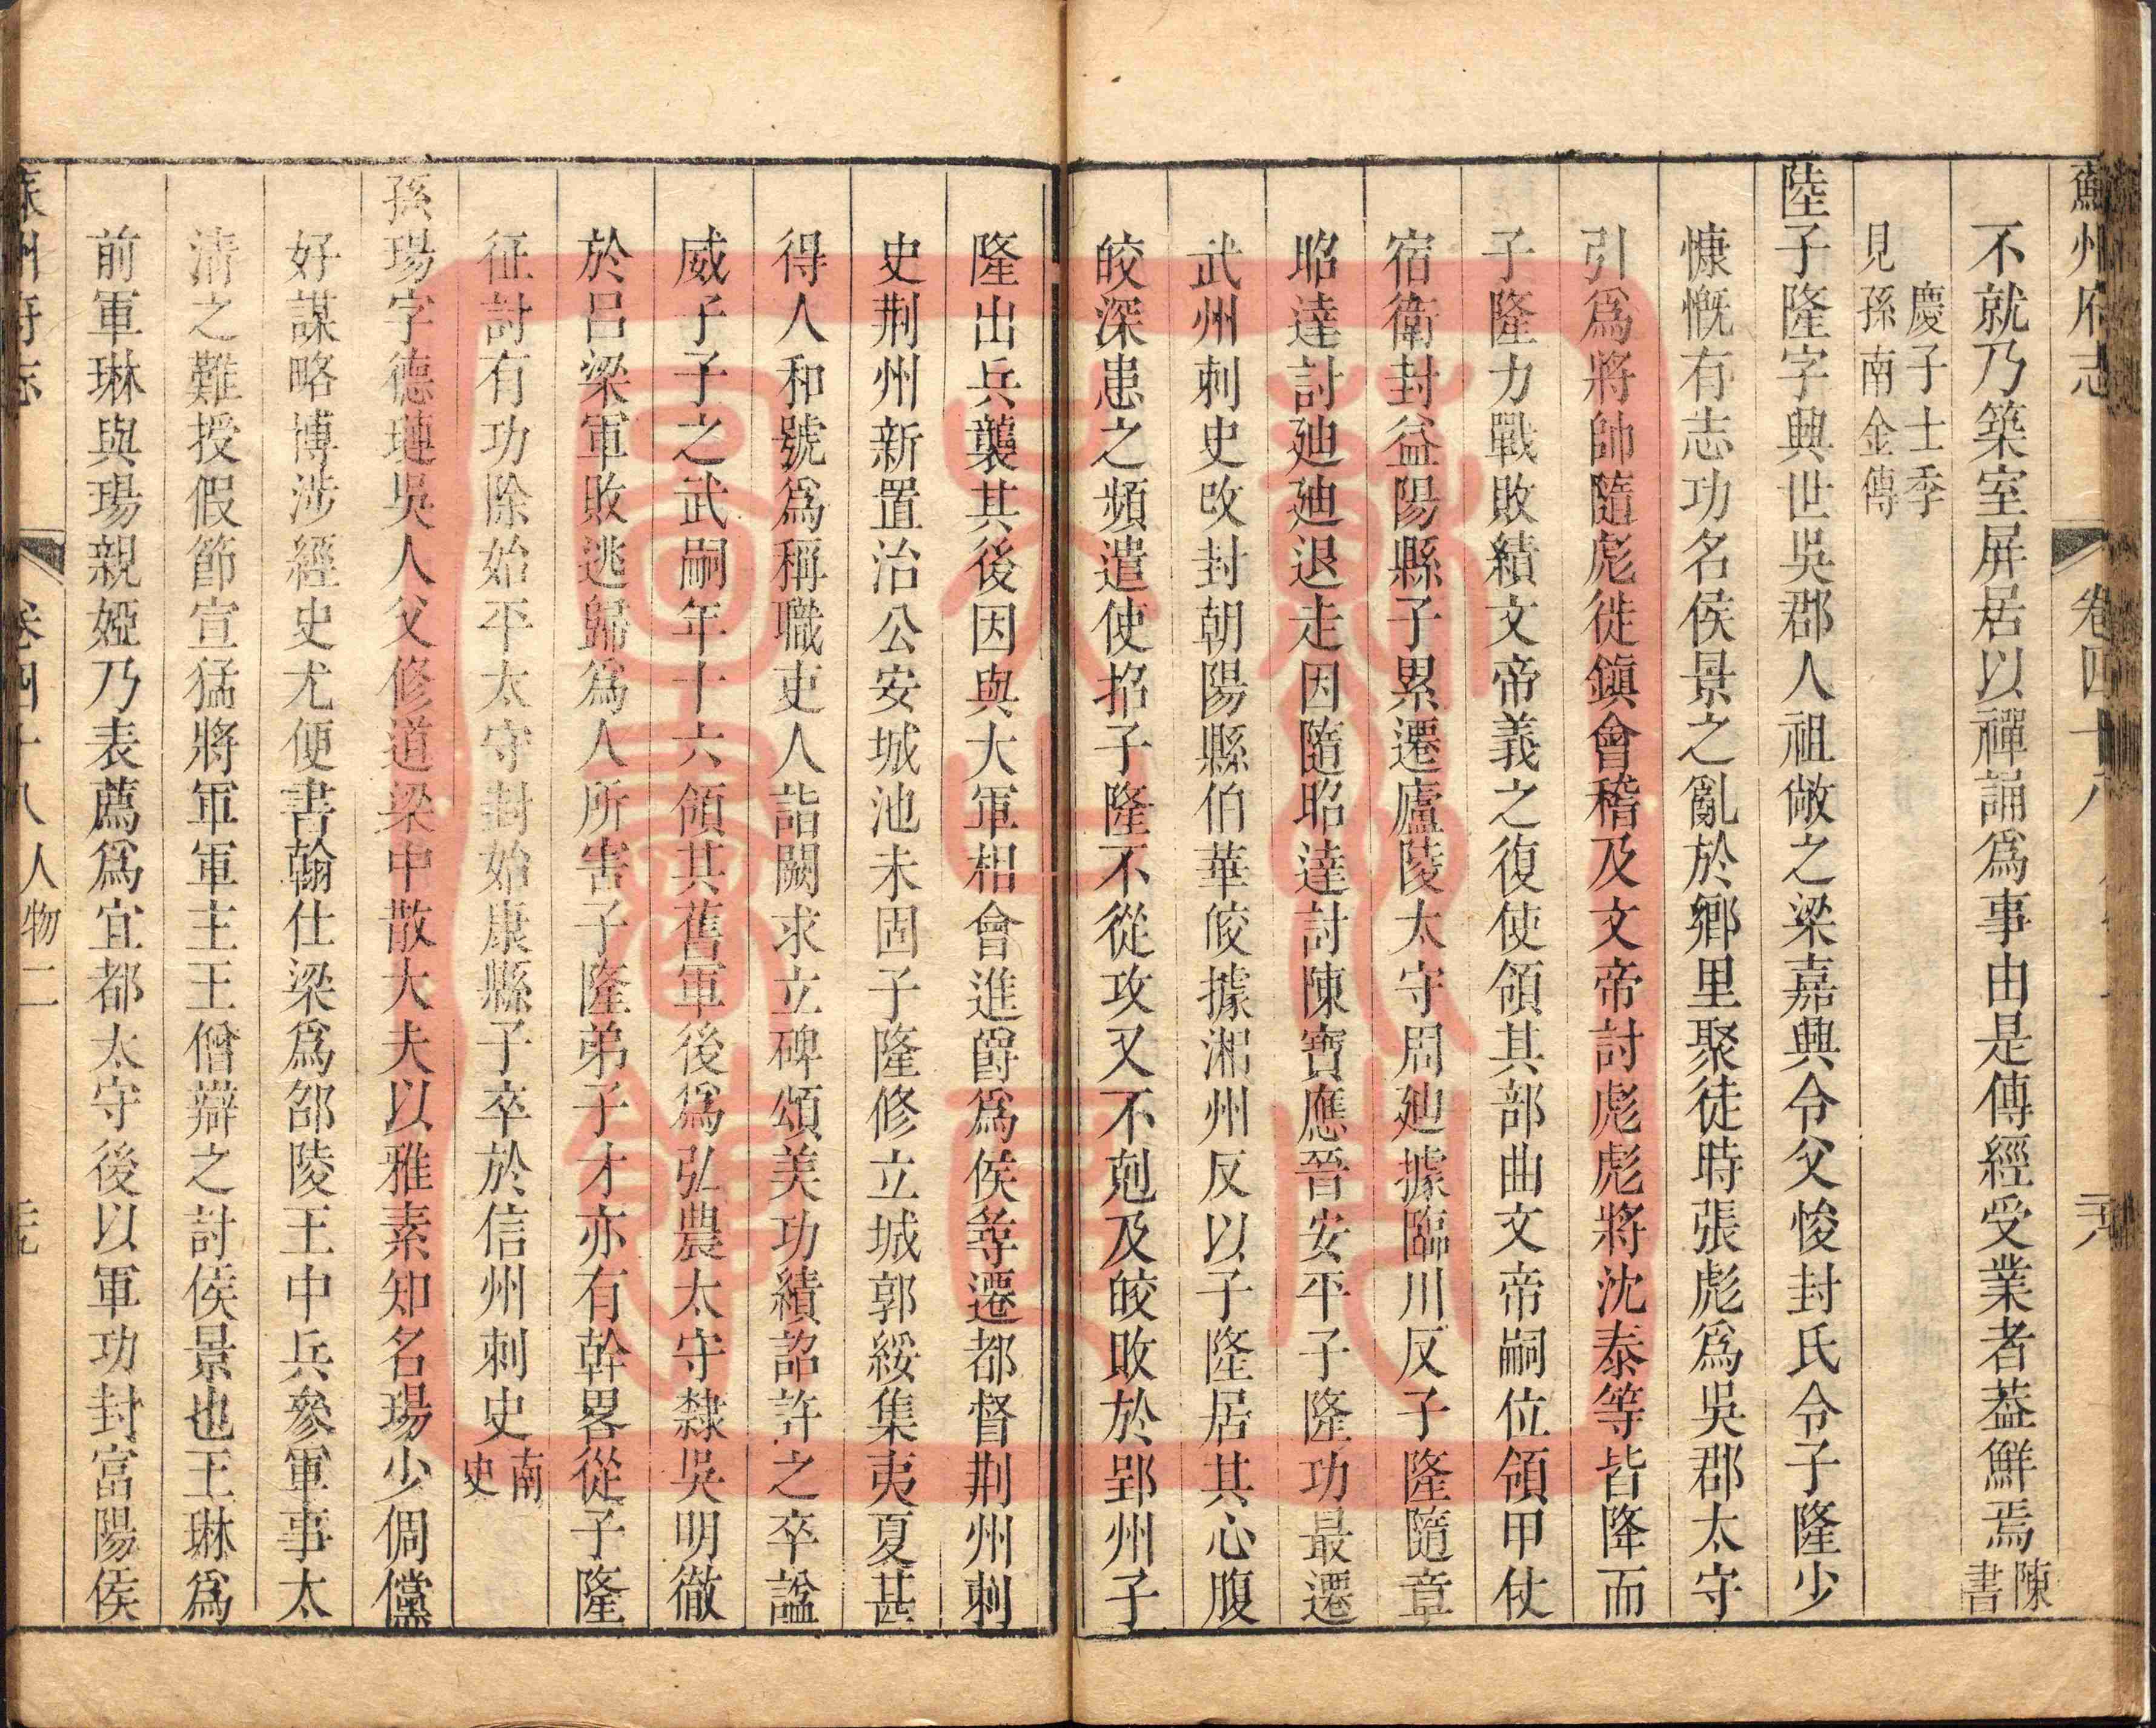 蘇州府志 卷四十八
不就乃築室屏居以禪誦爲事由是傳經受業者葢鮮焉陳書
慶子士季見孫南金傳
陸子隆字興世吳郡人祖敞之梁嘉興令父悛封氏令子隆少
慷慨有志功名侯景之亂於鄉里聚徒時張彪爲吳郡太守
引爲將帥隨彪徙鎭會稽及文帝討彪彪將沈泰等皆降而
子隆力戰敗績文帝義之復使領其部曲文帝嗣位領甲仗
宿衛封益陽縣子累遷廬陵太守周廸據臨川反子隆隨章
昭達討廸廸退走因隨昭達討陳寶應晉安平子隆功最遷
武州刺史攺封朝陽縣伯華皎據湘州反以子隆居其心腹
皎深患之頻遣使招子隆不從攻又不剋及皎敗於郢州子
隆出兵襲其後因與大軍相會進爵爲侯尋遷都督荆州刺
史荆州新置治公安城池未固子隆修立城郭綏集夷夏甚
得人和號爲稱職吏人詣闕求立碑頌美功績詔許之卒諡
威子子之武嗣年十六領其舊軍後爲弘農太守隸吳明徹
於呂梁軍敗逃歸爲人所害子隆弟子才亦有幹畧從子隆
征討有功除始平太守封始康縣子卒於信州刺史南史
孫瑒字德璉吳人父修道梁中散大夫以雅素知名瑒少倜儻
好謀略博涉經史尤便書翰仕梁爲邵陵王中兵參軍事太
清之難授假節宣猛將軍軍主王僧辯之討侯景也王琳爲
前軍琳與瑒親婭乃表薦爲宜都太守後以軍功封富陽侯
蘇州府志 卷四十八 人物二